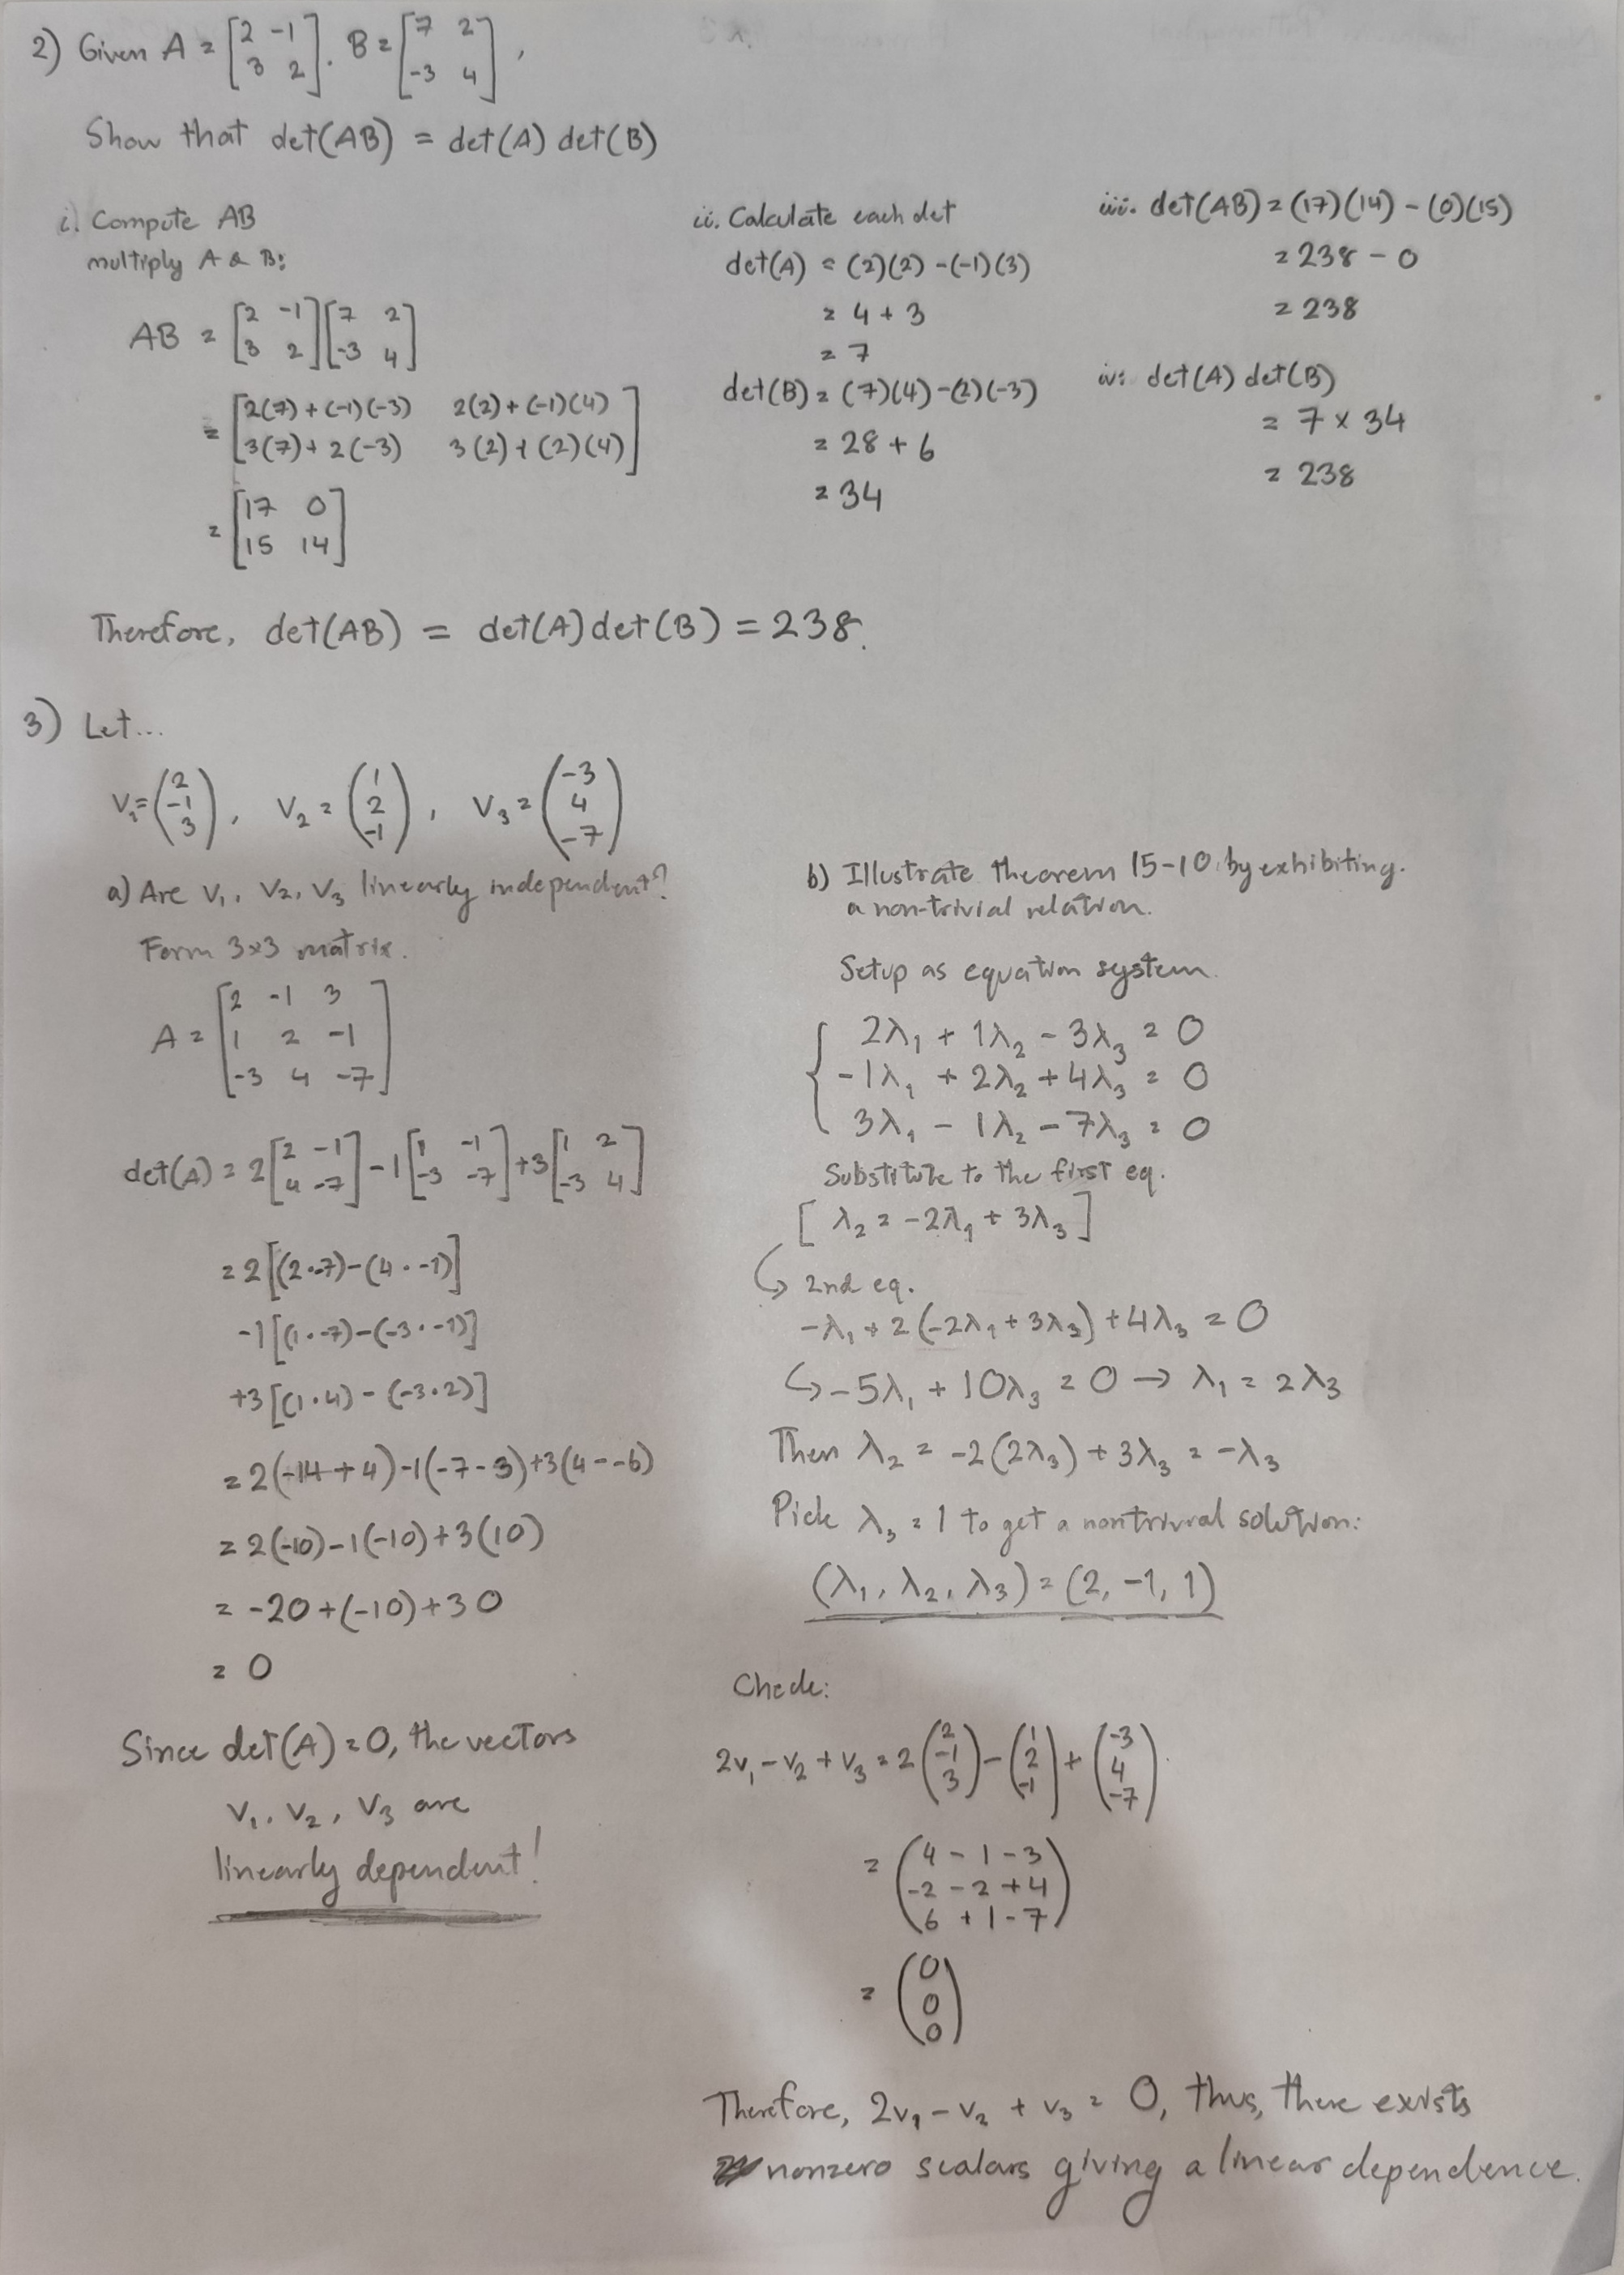 2) Given A = [2 -1; 3 2], B = [7 2; -3 4],
Show that det(AB) = det(A) det(B)
i) Compute AB
multiply A & B:
AB = [2 -1; 3 2][7 2; -3 4]
= [2(7)+(-1)(-3) 2(2)+(-1)(4); 3(7)+2(-3) 3(2)+(2)(4)]
= [17 0; 15 14]
ii. Calculate each det
det(A) = (2)(2) -(-1)(3)
= 4 + 3
= 7
det(B) = (7)(4)-(2)(-3)
= 28 + 6
= 34
iii. det(AB) = (17)(14) - (0)(15)
= 238 - 0
= 238
iv. det(A) det(B)
= 7 x 34
= 238
Therefore, det(AB) = det(A)det(B) = 238.
3) Let...
V₁ = (2; -1; 3), V₂ = (1; 2; -1), V₃ = (-3; 4; -7)
a) Are V₁, V₂, V₃ linearly independent?
Form 3x3 matrix.
A = [2 -1 3; 1 2 -1; -3 4 -7]
det(A) = 2[2 -1; 4 -7] -1[1 -1; -3 -7] +3[1 2; -3 4]
= 2[(2·-7)-(4·-1)]
-1[(1·-7)-(-3·-1)]
+3[(1·4)-(-3·2)]
= 2(-14+4)-1(-7-3)+3(4--6)
= 2(-10)-1(-10)+3(10)
= -20+(-10)+30
= 0
Since det(A) = 0, the vectors
V₁, V₂, V₃ are
linearly dependent!
b) Illustrate theorem 15-10 by exhibiting.
a non-trivial relation.
Setup as equation system.
2λ₁ + 1λ₂ - 3λ₃ = 0
-1λ₁ + 2λ₂ + 4λ₃ = 0
3λ₁ - 1λ₂ - 7λ₃ = 0
Substitute to the first eq.
[λ₂ = -2λ₁ + 3λ₃]
↳ 2nd eq.
-λ₁ + 2(-2λ₁ + 3λ₃) + 4λ₃ = 0
↳ -5λ₁ + 10λ₃ = 0 → λ₁ = 2λ₃
Then λ₂ = -2(2λ₃) + 3λ₃ = -λ₃
Pick λ₃ = 1 to get a nontrivial solution:
(λ₁, λ₂, λ₃) = (2, -1, 1)
Check:
2v₁ - v₂ + v₃ = 2(2; -1; 3) - (1; 2; -1) + (-3; 4; -7)
= (4 - 1 - 3; -2 - 2 + 4; 6 + 1 - 7)
= (0; 0; 0)
Therefore, 2v₁ - v₂ + v₃ = 0, thus, there exists
nonzero scalars giving a linear dependence.